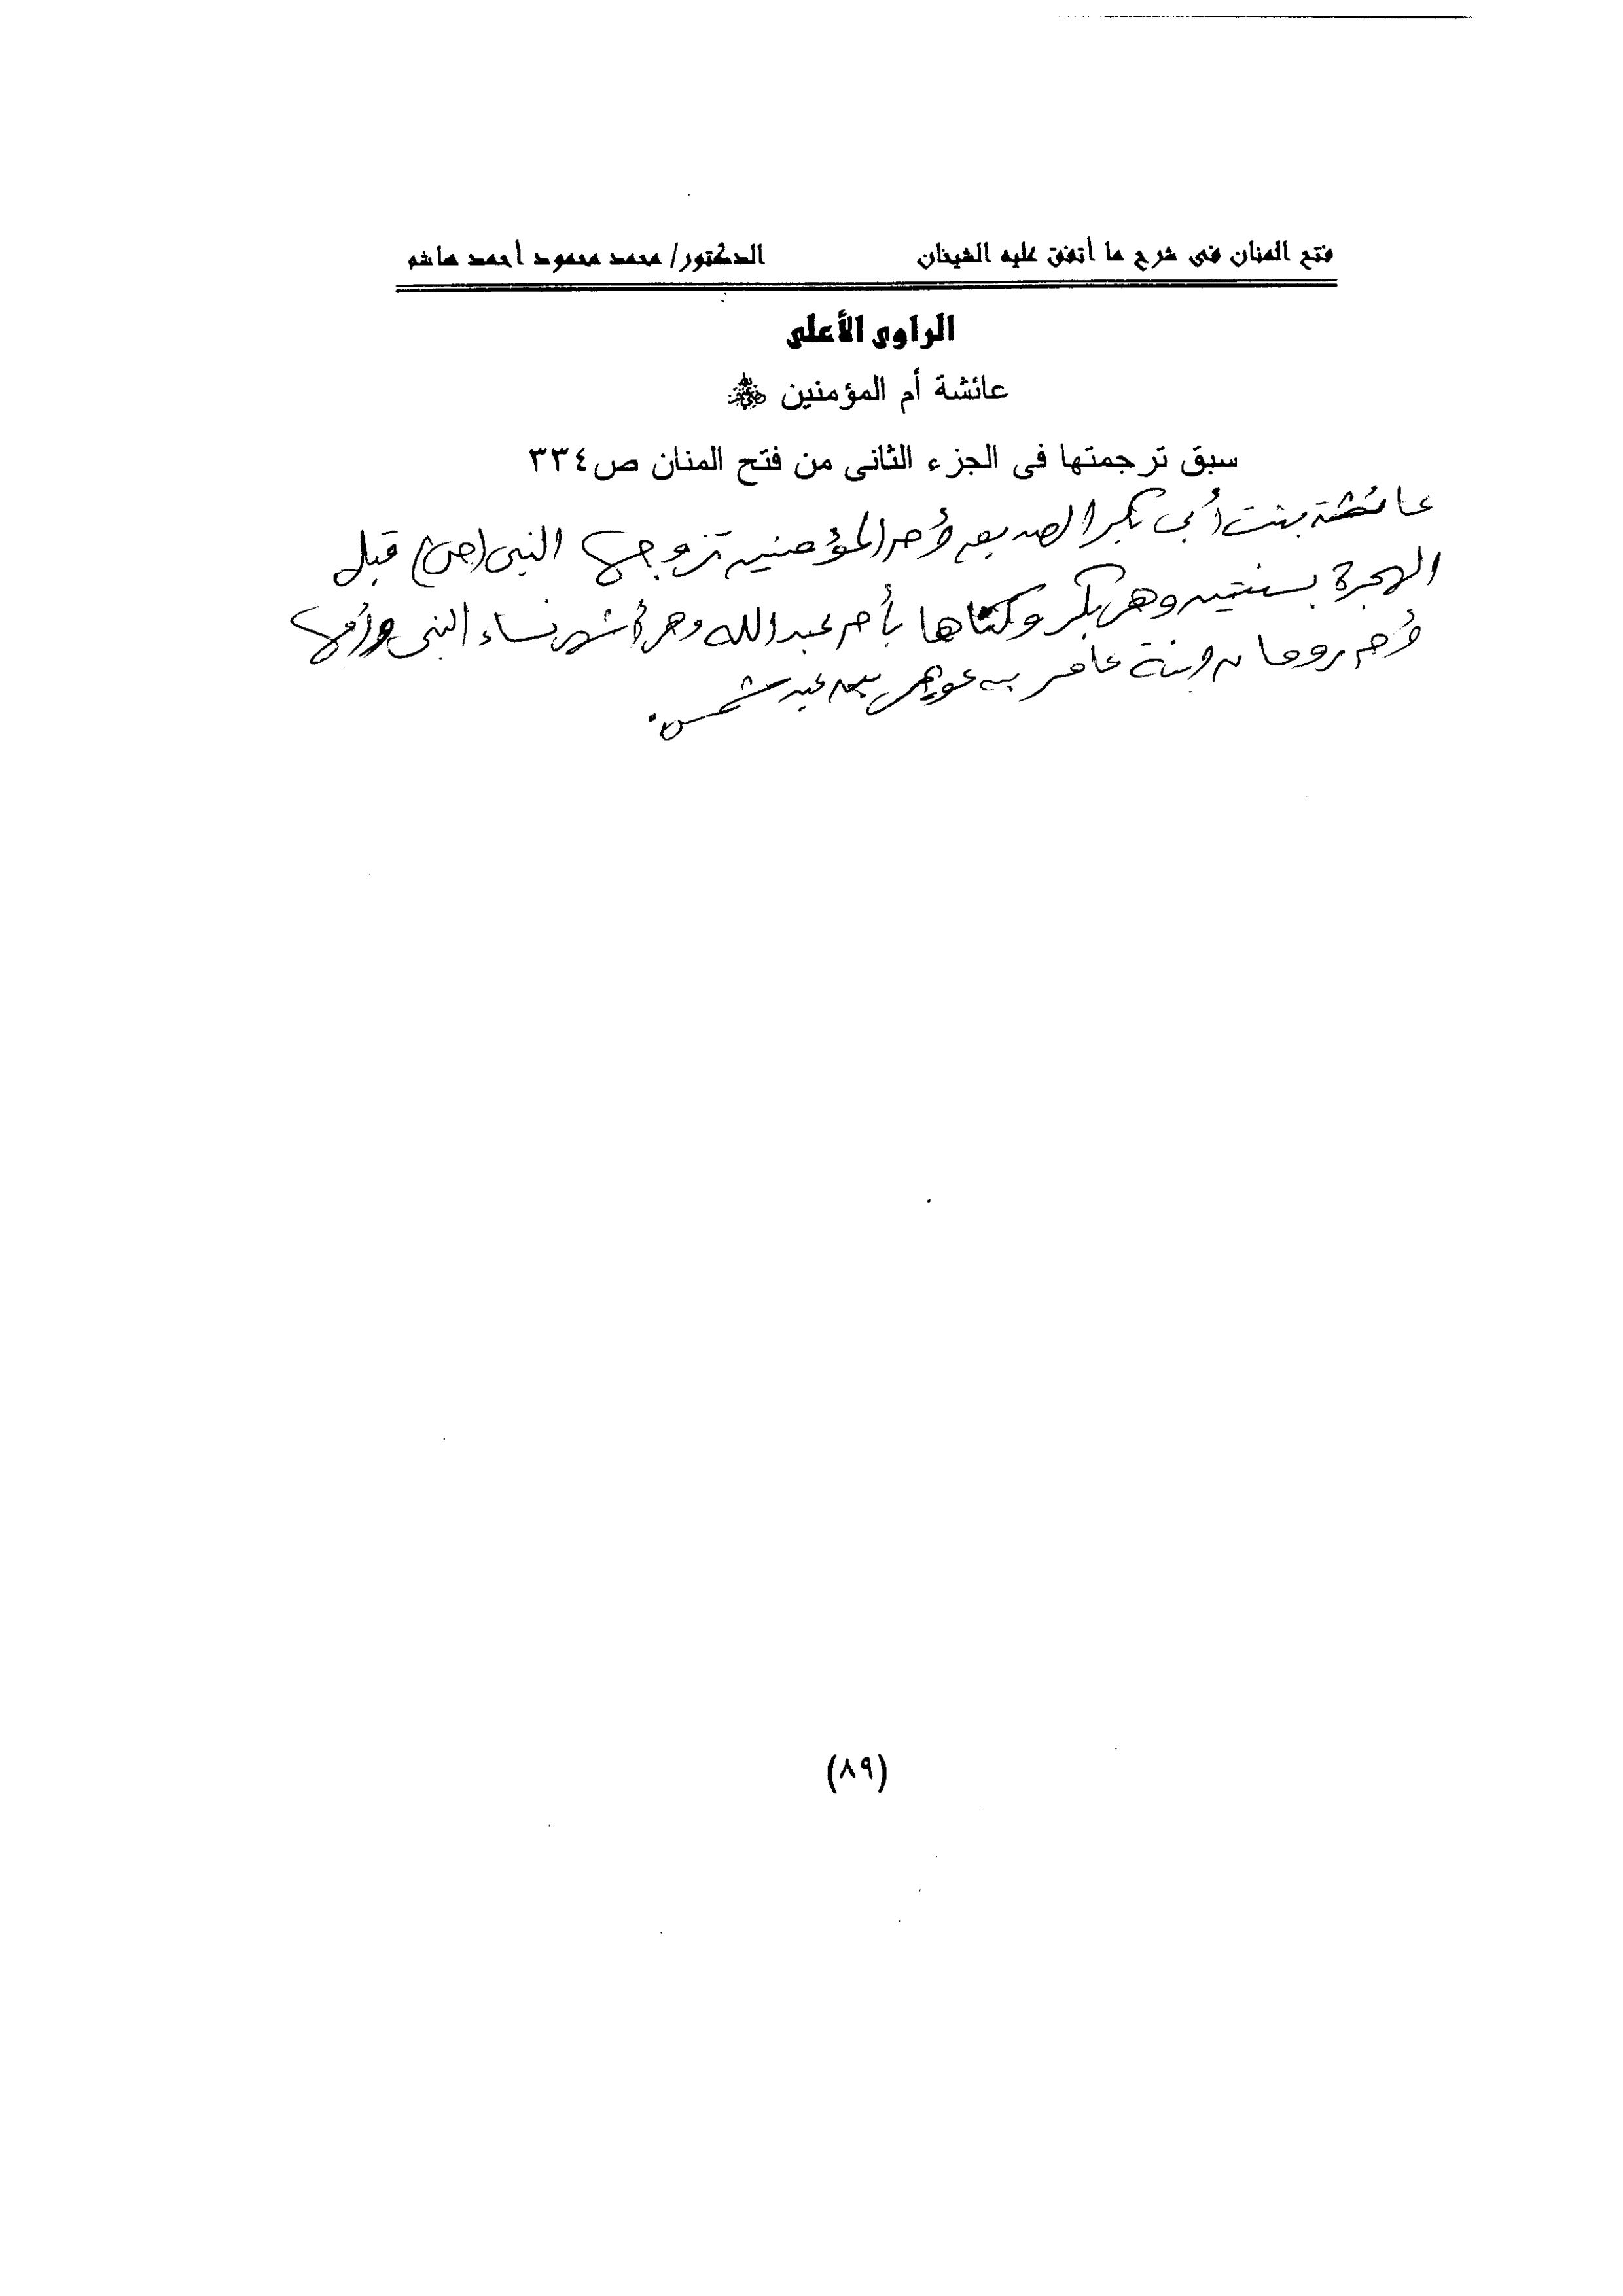 فتح المنان فى شرح ما أتفق عليه الشيخان الدكتور/ محمد محمود أحمد هاشم
الراوى الأعلى
عائشة أم المؤمنين رضي الله عنها
سبق ترجمتها فى الجزء الثانى من فتح المنان ص٣٣٤
عائشة بنت أبي بكر الصديق وأم المؤمنين تزوجها النبى (ص) قبل
الهجرة بسنتين وهى بكر وكناها بأم عبد الله وهى أشهر نساء النبى وأمها
أم رومان ابنة عامر بن عويمر بن عبد شمس.
(٨٩)